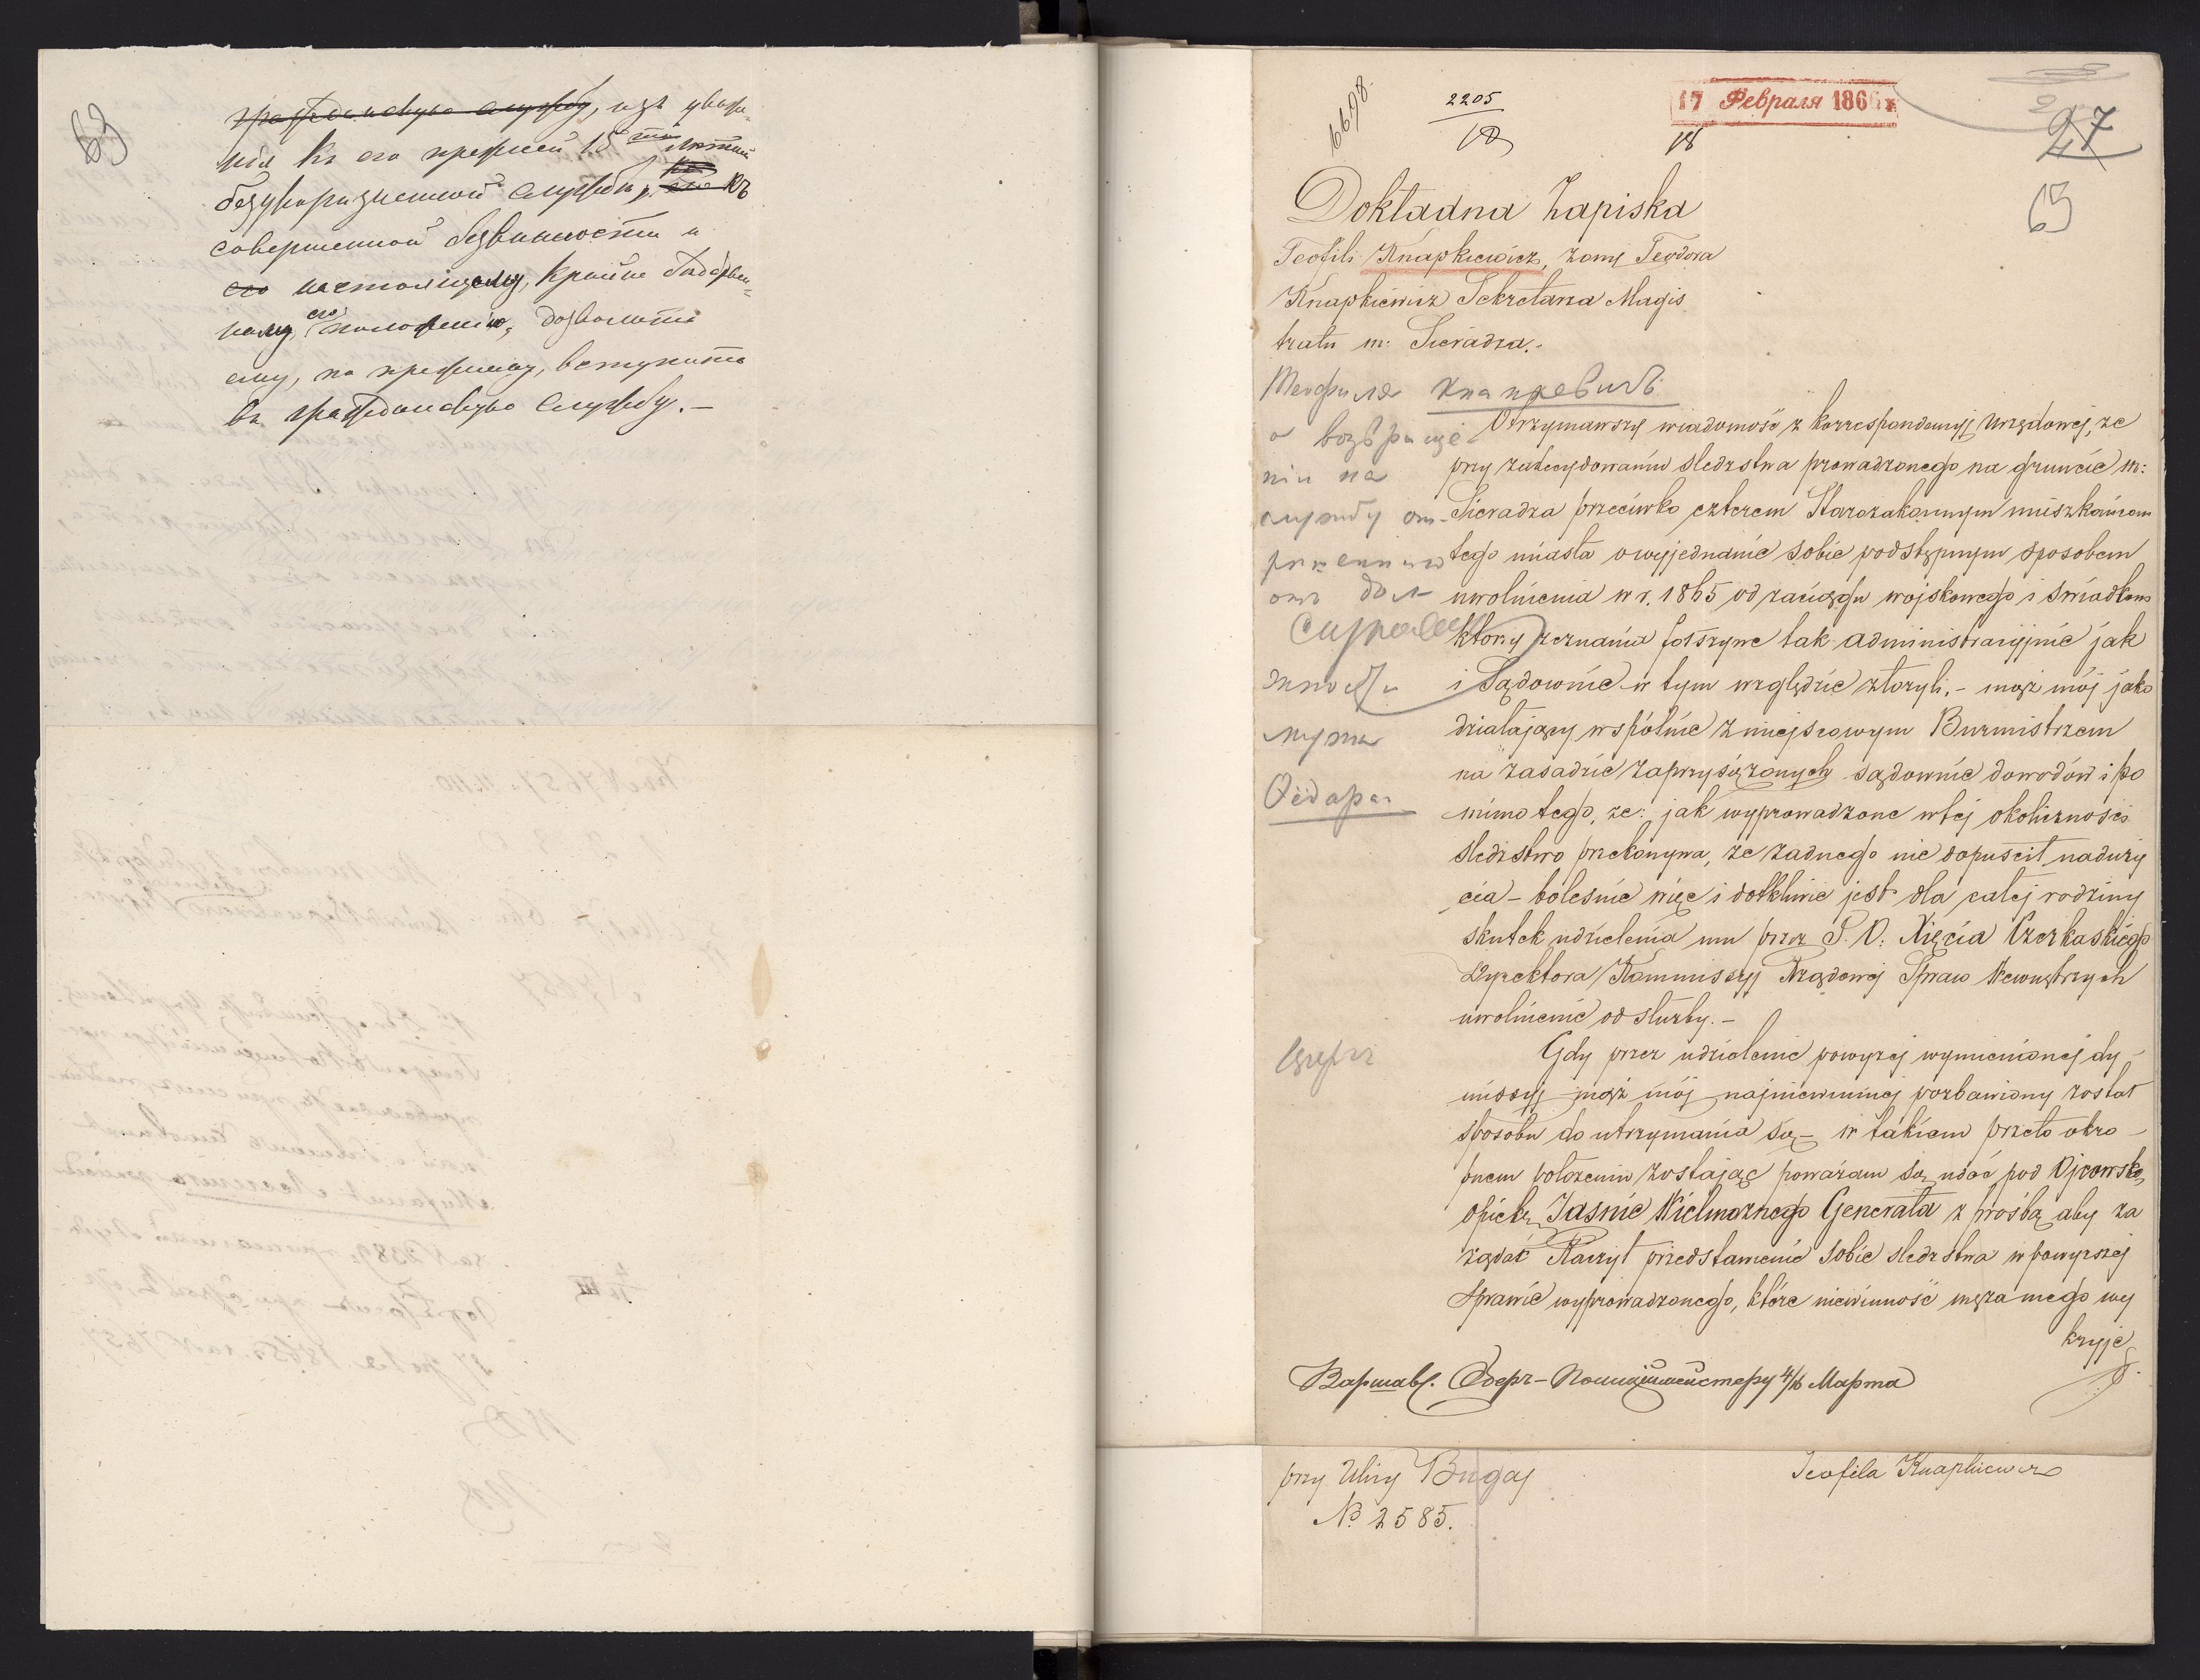 63
гражданскую службу, изъ уваже-
нія къ его прежней 15ти лѣтней
безукоризненной службы, къ
совершенной безвинности и
его настоящему, крайне бѣдствен-
ному его положенію, дозволить
ему, по прежнему, вступить
въ гражданскую службу.—
6698
2205
17 Февраля 1866 г
18
27
63
Dokładna Zapiska
Teofili Knapkiewicz, żony Teodora
Knapkiewicz Sekretarza Magis
tratu m: Sieradza.-
Теофиля Кнапкевичъ
о возвраще
ніи на
службу от-
ъ дол
мужа
Ѳедора
Otrzymawszy wiadomość z korrespondencyj urzędowej, że
przy zadecydowaniu śledzstwa prowadzonego na gruncie m:
Sieradza przeciwko czterem Starozakonnym mieszkańcom
tego miasta o wyjednanie sobie podstępnym sposobem
uwolnienia w r. 1865 od zaciągu wojskowego i świadkom
którzy zeznania fałszywe tak administracyjnie jak
i Sądownie w tym względzie złożyli,- mąż mój jako
działający wspólnie z miejscowym Burmistrzem
na zasadzie zaprzysiężonych sądownie dowodów i po
mimo tego, że: jak wyprowadzone w tej okoliczności
śledzstwo przekonywa, że żadnego nie dopuścił naduży
cia – boleśnie więc i dotkliwie jest dla całej rodziny
skutek udzielenia mu przez P. O: Xięcia Czerkaskiego
Dyrektora Kommissyj Rządowej Spraw Wewnętrzych
uwolnienie od służby.–
Gdy przez udzielenie powyżej wymienionej dy-
missyj mąż mój najniewinniej pozbawiony został
sposobu do utrzymania się – w takiem przeto okro-
pnem położeniu zostając poważam się udać pod Ojcowską
opiekę Jaśnie Wielmożnego Generała z prośbą aby za
żądać Raczył przedstawienie sobie śledzstwa w powyższej
sprawie wyprowadzonego, które niewinność męża mego wy
kryje
Варшавс. Оберъ-Полиціймейстеру 4/16 Марта
przy Ulicy Bugaj
№ 2585.
Teofila Knapkiewicz